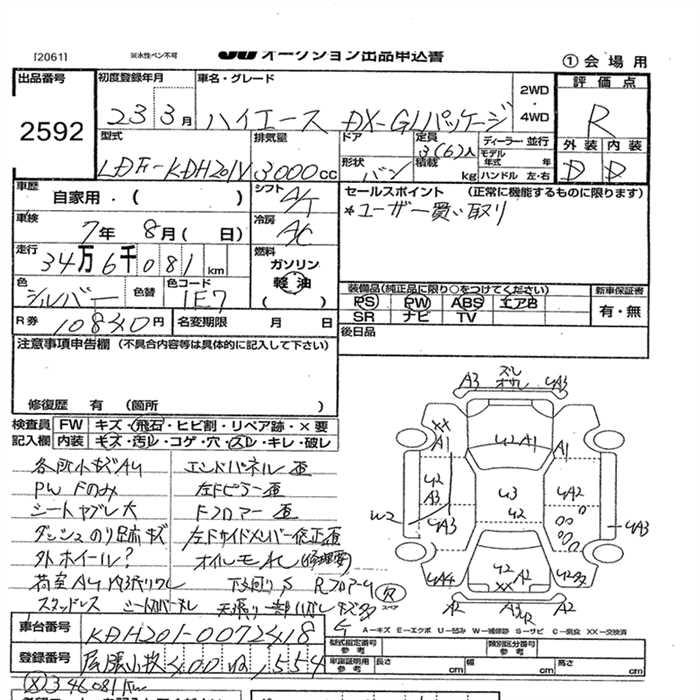 [2061] ※水性ペン不可 JU オークション出品申込書 ① 会場用
出品番号 初度登録年月 車名・グレード 2WD・4WD 評価点
2592 23 3月 ハイエース DX-GLパッケージ R
型式 排気量 ドア 定員 ディーラー・並行 外装 内装
LDF-KDH201V 3000cc 形状 バン 3(6)人 積載 kg モデル年式 年 ハンドル 左・右 D D
車歴 自家用・( ) シフト A/T セールスポイント (正常に機能するものに限ります)
車検 7年 8月 ( 日) 冷房 AC *ユーザー買い取り
走行 34万6千081km 燃料 ガソリン 軽油 ( )
色 シルバー 色替 色コード 1E7 装備品(純正品に限り○をつけてください) 新車保証書
PS PW ABS エアB 有・無
R券 10840円 名変期限 月 日 SR ナビ TV
注意事項申告欄 (不具合内容等は具体的に記入して下さい) 後日品
修復歴 有 (箇所 )
検査員記入欄 FW キズ・飛石・ヒビ割・リペア跡・×要
内装 キズ・汚レ・コゲ・穴・スレ・キレ・破レ
各所小キズAU エンドパネル歪
PW Fのみ 左Fピラー歪
シートヤブレ大 Fフロアー歪
ダッシュのり跡キズ 左Fサイドメンバー修正歪
外ホイール? オイルモレ (修理要)
荷室AU 下回りS Rフロアー
スタッドレス
A3 A3
XX A1 U2A1 A1
U2 A3 U3 U2 UA2
W2 UA3 U2 UA3
UA4 U2 A2 XX
A2 A3 A2 スペア
A-キズ E-エクボ U-凹み W-補修跡 S-サビ C-腐食 XX-交換済
車台番号 KDH201-0072418 型式指定番号 参考 類別区分番号 参考
登録番号 尾張小牧 400 1554 車庫証明用 参考 長さ cm 幅 cm 高さ cm
(X)346081km